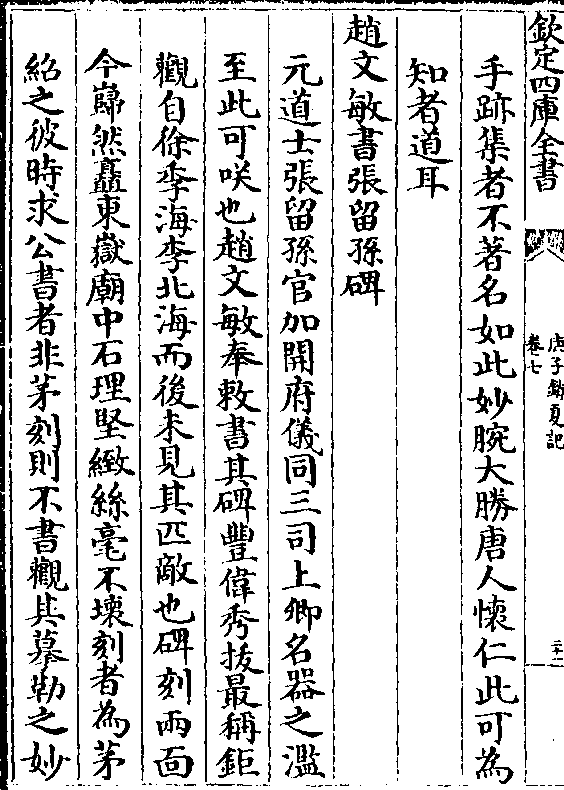 欽定四庫全書
庚子銷夏記
卷七
三十一
手跡集者不著名如此妙腕大勝唐人懷仁此可為
知者道耳
趙文敏書張留孫碑
元道士張留孫官加開府儀同三司上卿名器之濫
至此可咲也趙文敏奉敕書其碑豐偉秀拔最稱鉅
觀自徐季海李北海而後未見其匹敵也碑刻兩面
今巋然矗東嶽廟中石理堅緻絲毫不壞刻者為茅
紹之彼時求公書者非茅刻則不書觀其摹勒之妙